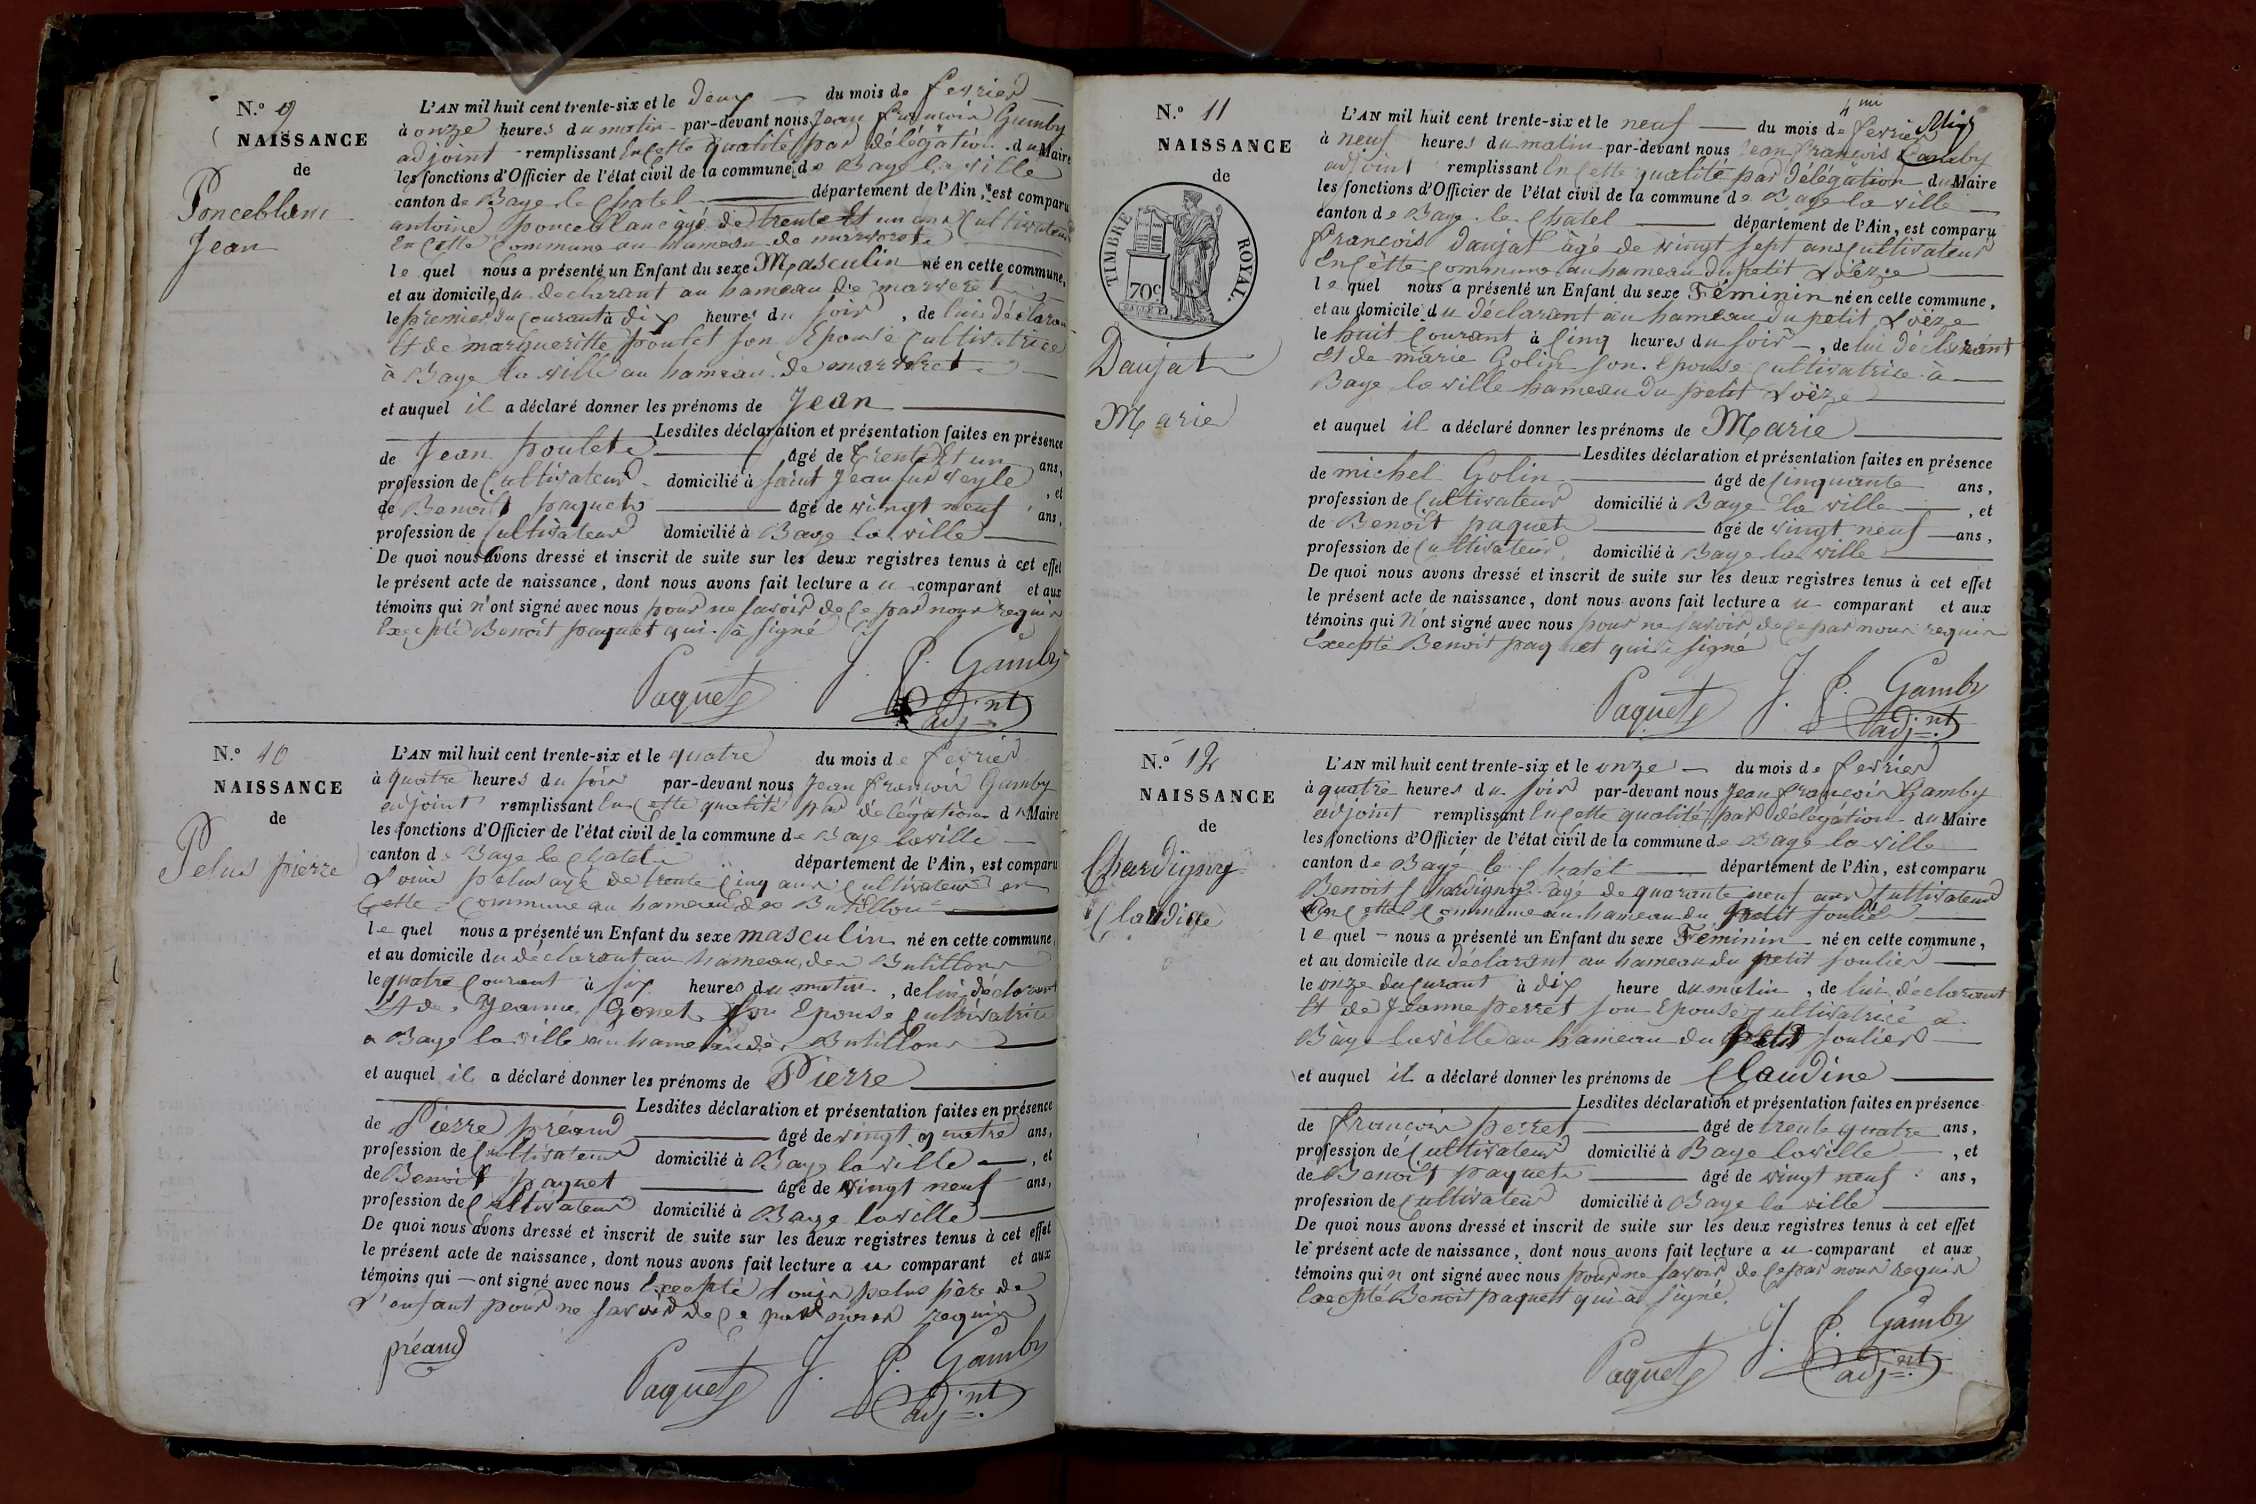 N.º 9
NAISSANCE
de
Ponceblanc
Jean
L'AN mil huit cent trente-six et le deux du mois de fevrier
à onze heures du matin par-devant nous Jean françois Gamby
adjoint remplissant En cette qualité par délégation du Maire
les fonctions d'Officier de l'état civil de la commune de Bage la ville
canton de Bage le Chatel département de l'Ain, est comparu
antoine ponceblanc agé de trente Et un ans Cultivateur
En Cette Commune au hameau de
le quel nous a présenté un Enfant du sexe Masculin né en cette commune,
et au domicile du declarant au hameau de
le premier du Courant à dix heures du soir, de lui déclarant
Et de margueritte poulet son Epouse Cultivatrice
à Bage la ville au hameau de
et auquel il a déclaré donner les prénoms de Jean
Lesdites déclaration et présentation faites en présence
de Jean poulet âgé de trente Et un ans,
profession de Cultivateur domicilié à saint Jean sur veyle, et
de Benoit paquet âgé de vingt neuf ans,
profession de Cultivateur domicilié à Bage la ville
De quoi nous avons dressé et inscrit de suite sur les deux registres tenus à cet effet
le présent acte de naissance, dont nous avons fait lecture a u comparant et aux
témoins qui n'ont signé avec nous pour ne savoir de Ce par nous requis
Excepté Benoit paquet qui à signé
Paquet J. f. Gamby
adj.nt
N.º 10
NAISSANCE
de
Pelus pierre
L'AN mil huit cent trente-six et le quatre du mois de fevrier
à quatre heures du soir par-devant nous Jean françois Gamby
adjoint remplissant En Cette qualité par délégation du Maire
les fonctions d'Officier de l'état civil de la commune de Bage la ville
canton de Bage le Chatel département de l'Ain, est comparu
Louis pelus agé de trente Cinq ans Cultivateur en
Cette Commune au hameau des Butillons
le quel nous a présenté un Enfant du sexe masculin né en cette commune,
et au domicile du déclarant au hameau des Butillons
le quatre Courant à six heures du matin, de lui déclarant
Et de Jeanne Gonet son Epouse Cultivatrice
a Bage la ville au hameau des Butillons
et auquel il a déclaré donner les prénoms de Pierre
Lesdites déclaration et présentation faites en présence
de Pierre préaud âgé de vingt quatre ans,
profession de Cultivateur domicilié à Bage la ville, et
de Benoit paquet âgé de vingt neuf ans,
profession de Cultivateur domicilié à Bage la ville
De quoi nous avons dressé et inscrit de suite sur les deux registres tenus à cet effet
le présent acte de naissance, dont nous avons fait lecture a u comparant et aux
témoins qui ont signé avec nous Excepté Louis pelus père de
L'enfant pour ne savoir de Ce par nous requis
préaud
Paquet J. f. Gamby
adj.nt
N.º 11
NAISSANCE
de
TIMBRE ROYAL.
70c
Daujat
Marie
L'AN mil huit cent trente-six et le neuf du mois de fevrier
à neuf heures du matin par-devant nous Jean françois Gamby
adjoint remplissant En Cette qualité par délégation du Maire
les fonctions d'Officier de l'état civil de la commune de Bage la ville
canton de Bage le Chatel département de l'Ain, est comparu
françois Daujat âgé de vingt sept ans Cultivateur
En Cette Commune au hameau du petit Loëze
le quel nous a présenté un Enfant du sexe Féminin né en cette commune,
et au domicile du déclarant au hameau du petit Loëze
le huit Courant à Cinq heures du soir, de lui déclarant
et de marie Golin son Epouse Cultivatrice à
Bage la ville hameau du petit Loëze
et auquel il a déclaré donner les prénoms de Marie
Lesdites déclaration et présentation faites en présence
de michel Golin âgé de Cinquante ans,
profession de Cultivateur domicilié à Bage la ville, et
de Benoit paquet âgé de vingt neuf ans,
profession de Cultivateur domicilié à Bage la ville
De quoi nous avons dressé et inscrit de suite sur les deux registres tenus à cet effet
le présent acte de naissance, dont nous avons fait lecture a u comparant et aux
témoins qui n'ont signé avec nous pour ne savoir de Ce par nous requis
Excepté Benoit paquet qui à signé
Paquet J. f. Gamby
adj.nt
N.º 12
NAISSANCE
de
Chardigny
Claudine
L'AN mil huit cent trente-six et le onze du mois de fevrier
à quatre heures du soir par-devant nous Jean françois Gamby
adjoint remplissant En Cette qualité par délégation du Maire
les fonctions d'Officier de l'état civil de la commune de Bage la ville
canton de Bagé le Chatel département de l'Ain, est comparu
Benoit Chardigny âgé de quarante neuf ans Cultivateur
En Cette Commune au hameau du petit soulier
le quel nous a présenté un Enfant du sexe Féminin né en cette commune,
et au domicile du déclarant au hameau du petit soulier
le onze du Curant à dix heure du matin, de lui déclarant
Et de Jeanne perret son Epouse Cultivatrice a
Bage la ville au hameau du petit soulier
et auquel il a déclaré donner les prénoms de Claudine
Lesdites déclaration et présentation faites en présence
de françois perret âgé de trente quatre ans,
profession de Cultivateur domicilié à Bage la ville, et
de Benoit paquet âgé de vingt neuf ans,
profession de Cultivateur domicilié à Bage la ville
De quoi nous avons dressé et inscrit de suite sur les deux registres tenus à cet effet
le présent acte de naissance, dont nous avons fait lecture a u comparant et aux
témoins qui n ont signé avec nous pour ne savoir de Ce par nous requis
Excepté Benoit paquet qui a signé.
Paquet J. f. Gamby
adj.nt